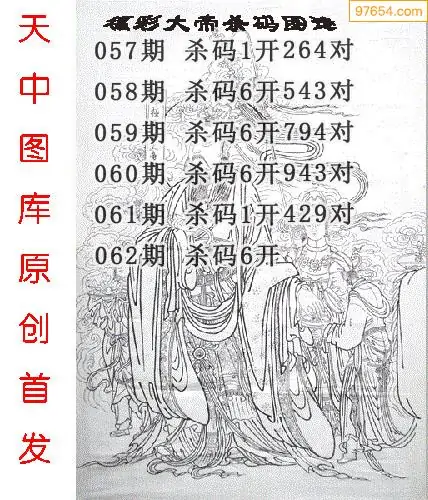 97654.com
福彩大帝杀码图
057期 杀码1开264对
058期 杀码6开543对
059期 杀码6开794对
060期 杀码6开943对
061期 杀码1开429对
062期 杀码6开
天中图库原创首发